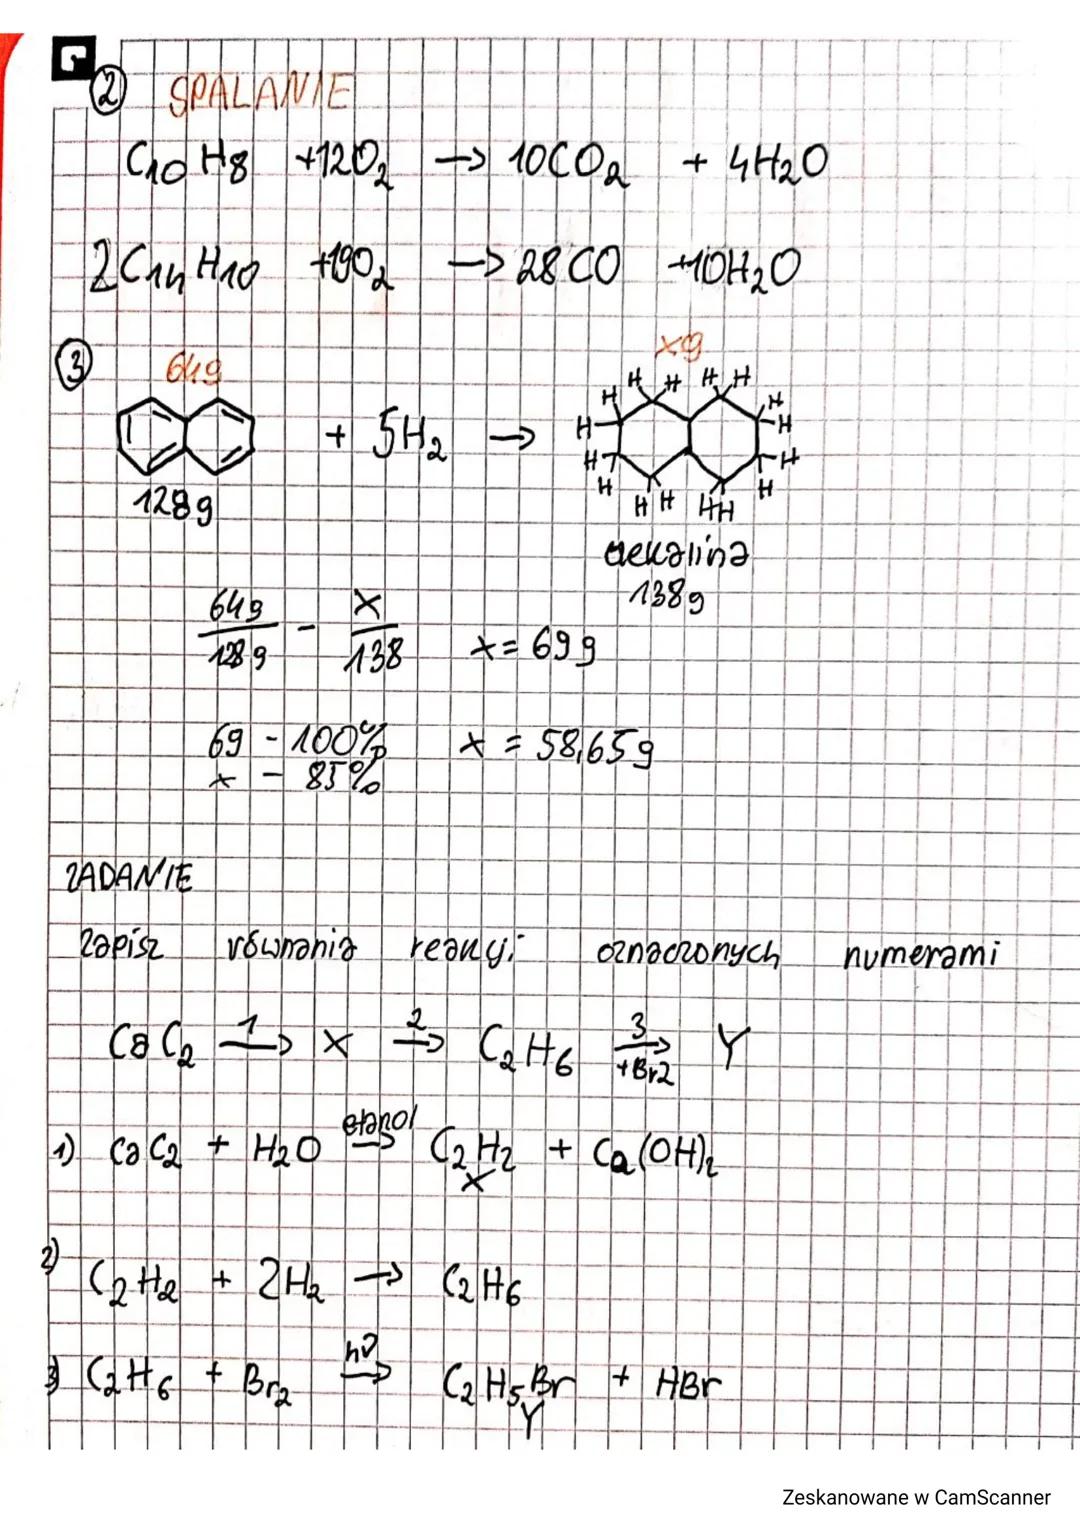 ② SPALANIE
C10H8 +12O2 → 10CO2 + 4H2O
2C14H10 +19O2 → 28CO +10H2O
③ 64g xg
+ 5H2 →
H H H H
H H
H H
H H
H H
H H H H
128g
dekalina
138g
64g/128g - x/138 x = 69g
69 - 100% x = 58,65g
x - 85%
ZADANIE
zapisz równania reakcji oznaczonych numerami
CaC2 1→ X 2→ C2H6 3→ +Br2 Y
1) CaC2 + H2O etanol→ C2H2 + Ca(OH)2
X
2) C2H2 + 2H2 → C2H6
3) C2H6 + Br2 hν→ C2H5Br + HBr
Y
Zeskanowane w CamScanner